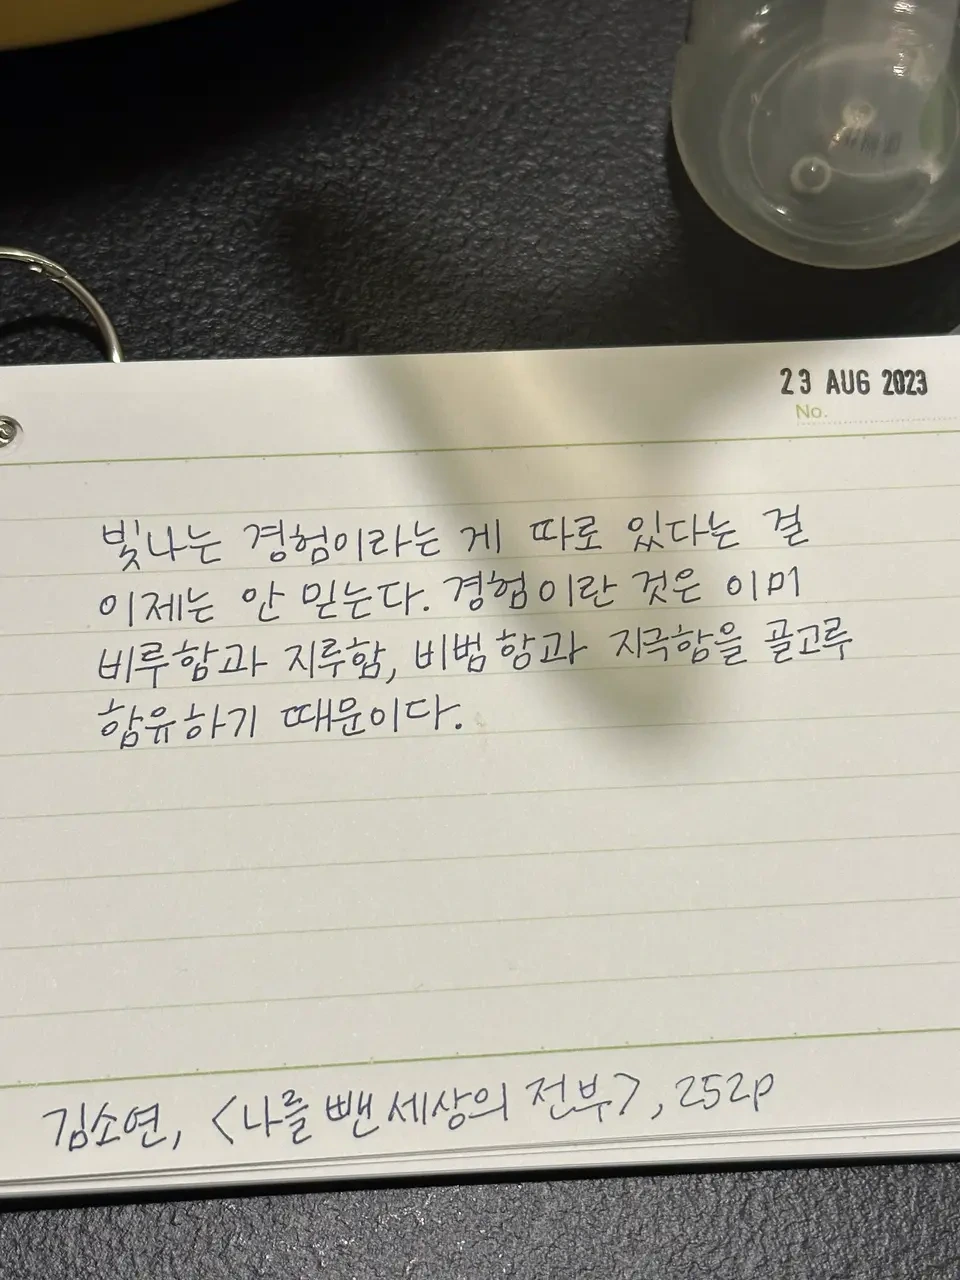 23 AUG 2023
No.
빛나는 경험이라는 게 따로 있다는 걸
이제는 안 믿는다. 경험이란 것은 이미
비루함과 지루함, 비범함과 지극함을 골고루
함유하기 때문이다.
김소연, <나를 뺀 세상의 전부>, 252p